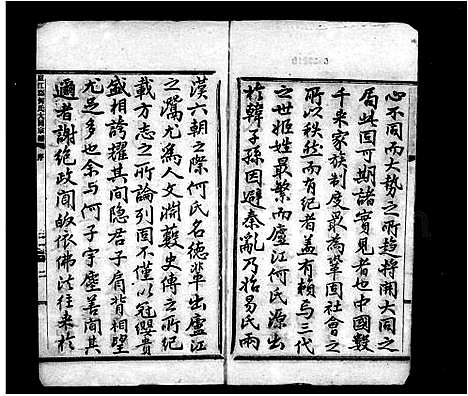 心不同而大勢之所趨將開大同之
局此固可期諸實見者也中國數
千來家族制度最為鞏固社會之
所以秩然而有紀者蓋有賴焉三代
之世姬姓最繁而廬江何氏源出
於韓子孫因避秦亂乃指易氏兩
漢六朝之際何氏名德輩出廬江
之灊尤為人文淵藪史傳之所紀
載方志之所論列固不僅以冠纓貴
盛相誇耀其間隱君子肩背相望
尤足多也余与何子宇塵善間其
邇者謝絕政間皈依佛法往来於
廬江郡何氏大同宗譜 序